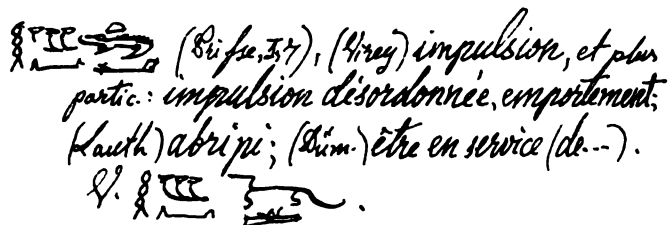 (Prisse, I, 7), (Virey) impulsion, et plus
partic.: impulsion désordonnée, emportement;
(Lauth) abripi; (Düm.) être en service (de---).
V. .